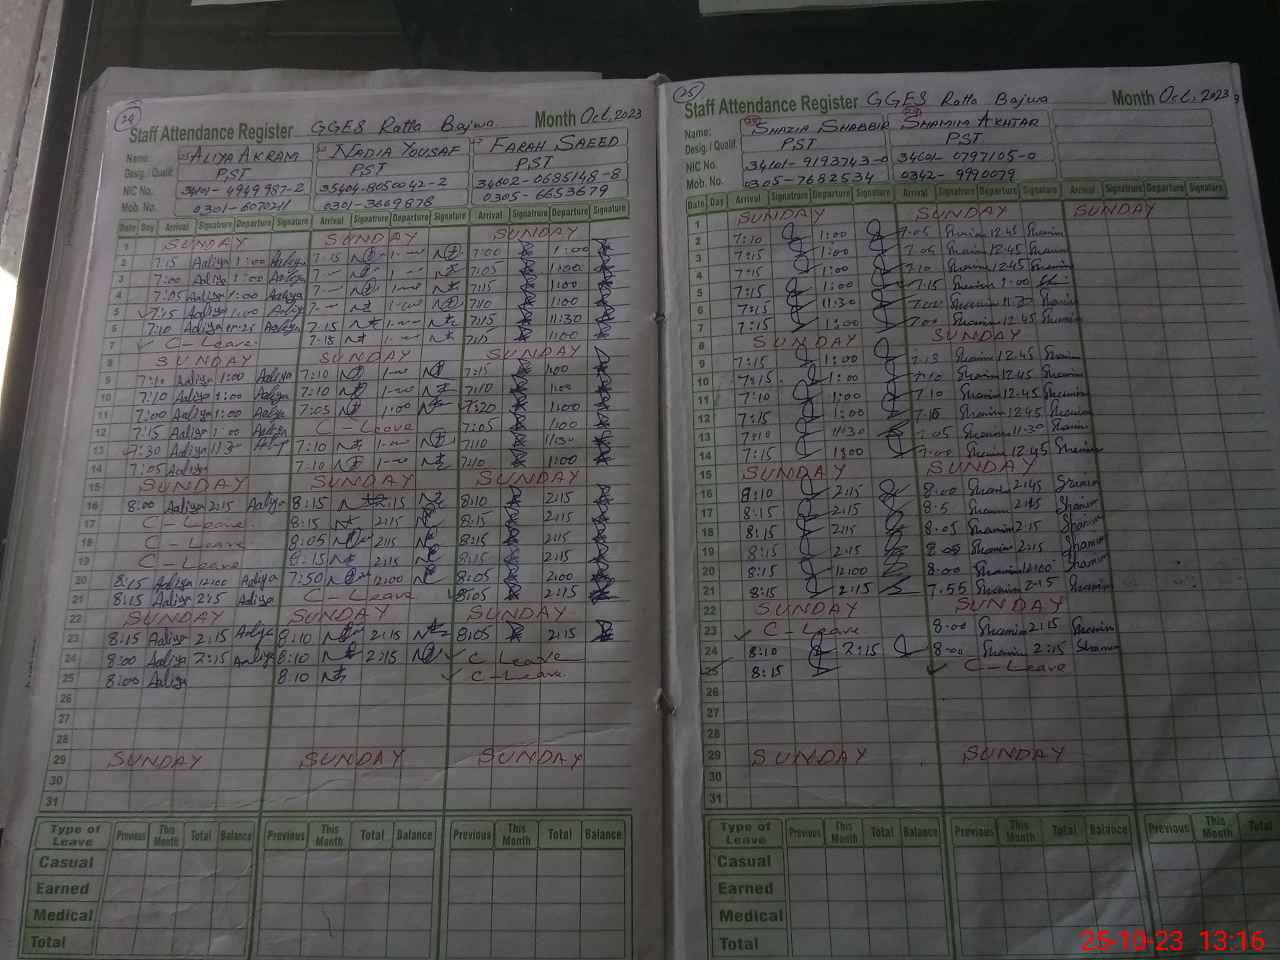 24
Staff Attendance Register GGES Ratta Bajwa Month Oct, 2023
Name: ALIYA AKRAM NADIA YOUSAF FARAH SAEED
Desig. / Qualif. PST PST PST
NIC No. 34101-4949987-2 35404-8050042-2 34602-0685148-8
Mob. No. 0301-6070211 0301-3609876 0305-6653679
Date Day Arrival Signature Departure Signature Arrival Signatrure Departure Signature Arrival Signature Departure Signature
1 SUNDAY SUNDAY SUNDAY
2 7:15 Aaliya 1:00 Aaliya 7:15 7:00 1:00
3 7:00 Aaliya 1:00 Aaliya 7:05 1:00
4 7:05 Aaliya 1:00 Aaliya 7:15 1:00
5 7:15 Aaliya 1:00 Aaliya 7:10 1:00
6 7:10 Aaliya Aaliya 7:15 7:15 11:30
7 C-Leave 7:15 1:00
8 SUNDAY SUNDAY SUNDAY
9 7:10 Aaliya 1:00 Aaliya 7:10 7:15 1:00
10 7:10 Aaliya 1:00 Aaliya 7:10 7:10 1:00
11 7:00 Aaliya 1:00 Aaliya 7:05 1:00 7:20 1:00
12 7:15 Aaliya 1:00 Aaliya C-Leave 7:05 1:00
13 7:30 Aaliya 11:30 7:10 7:10 11:30
14 7:05 Aaliya 7:10 7:10 1:00
15 SUNDAY SUNDAY SUNDAY
16 8:00 Aaliya 2:15 Aaliya 8:15 2:15 8:10 2:15
17 C-Leave 8:15 2:15 8:15 2:15
18 C-Leave 8:05 2:15 8:15 2:15
19 C-Leave 8:15 2:15 8:15 2:15
20 8:15 Aaliya 12:00 Aaliya 7:50 12:00 8:05
21 8:15 Aaliya 2:15 Aaliya C-Leave 8:05 2:15
22 SUNDAY SUNDAY SUNDAY
23 8:15 Aaliya 2:15 Aaliya 8:10 2:15 8:05 2:15
24 8:00 Aaliya 2:15 Aaliya 8:10 2:15 C-Leave
25 8:00 Aaliya 8:10 C-Leave
26
27
28
29 SUNDAY SUNDAY SUNDAY
30
31
Type of Leave Previous This Month Total Balance Previous This Month Total Balance Previous This Month Total Balance
Casual
Earned
Medical
Total
25
Staff Attendance Register GGES Ratta Bajwa Month Oct, 2023
Name: SHAZIA SHABBIR SHAMIM AKHTAR
Desig. / Qualif. PST PST
NIC No. 34101-9193743-0 34601-0797105-0
Mob. No. 0305-7682534 0342-9990079
Date Day Arrival Signature Departure Signature Arrival Signature Departure Signature Arrival Signature Departure Signature
1 SUNDAY SUNDAY SUNDAY
2 7:10 1:00 7:05 Shamim 12:45 Shamim
3 7:15 1:00 7:05 Shamim 12:45 Shamim
4 7:15 1:00 7:10 Shamim 12:45 Shamim
5 7:15 1:00 7:15 Shamim 1:00
6 7:15 11:30 Shamim Shamim
7 7:15 1:00 7:00 Shamim 12:45 Shamim
8 SUNDAY SUNDAY
9 7:15 1:00 Shamim 12:45 Shamim
10 7:15 1:00 7:10 Shamim 12:45 Shamim
11 7:10 1:00 7:10 Shamim 12:45 Shamim
12 7:15 1:00 Shamim 12:45 Shamim
13 7:10 11:30 7:05 Shamim 11:30 Shamim
14 7:15 1:00 7:00 Shamim 12:45 Shamim
15 SUNDAY SUNDAY
16 8:10 2:15 8:00 Shamim Shamim
17 8:15 2:15 8:5 Shamim 2:15 Shamim
18 8:15 2:15 8:05 Shamim 2:15 Shamim
19 8:15 2:15 8:05 Shamim 2:15 Shamim
20 8:15 12:00 8:00 Shamim 12:00 Shamim
21 8:15 2:15 7:55 Shamim 2:15 Shamim
22 SUNDAY SUNDAY
23 C-Leave 8:00 Shamim 2:15 Shamim
24 8:10 2:15 8:00 Shamim 2:15 Shamim
25 8:15 C-Leave
26
27
28
29 SUNDAY SUNDAY
30
31
Type of Leave Previous This Month Total Balance Previous This Month Total Balance Previous This Month Total
Casual
Earned
Medical
Total
25-10-23 13:16